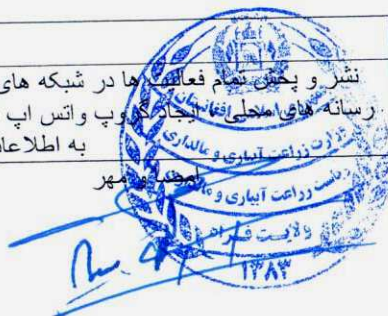 نشر و پخش تمام فعالیت ها در شبکه های
رسانه های محلی ، ایجاد گروپ واتس اپ
به اطلاعا
امضا و مهر
افغانستان
وزارت زراعت آبیاری و مالداری
ریاست زراعت آبیاری و مالداری
ولایت فراه
۱۳۸۳